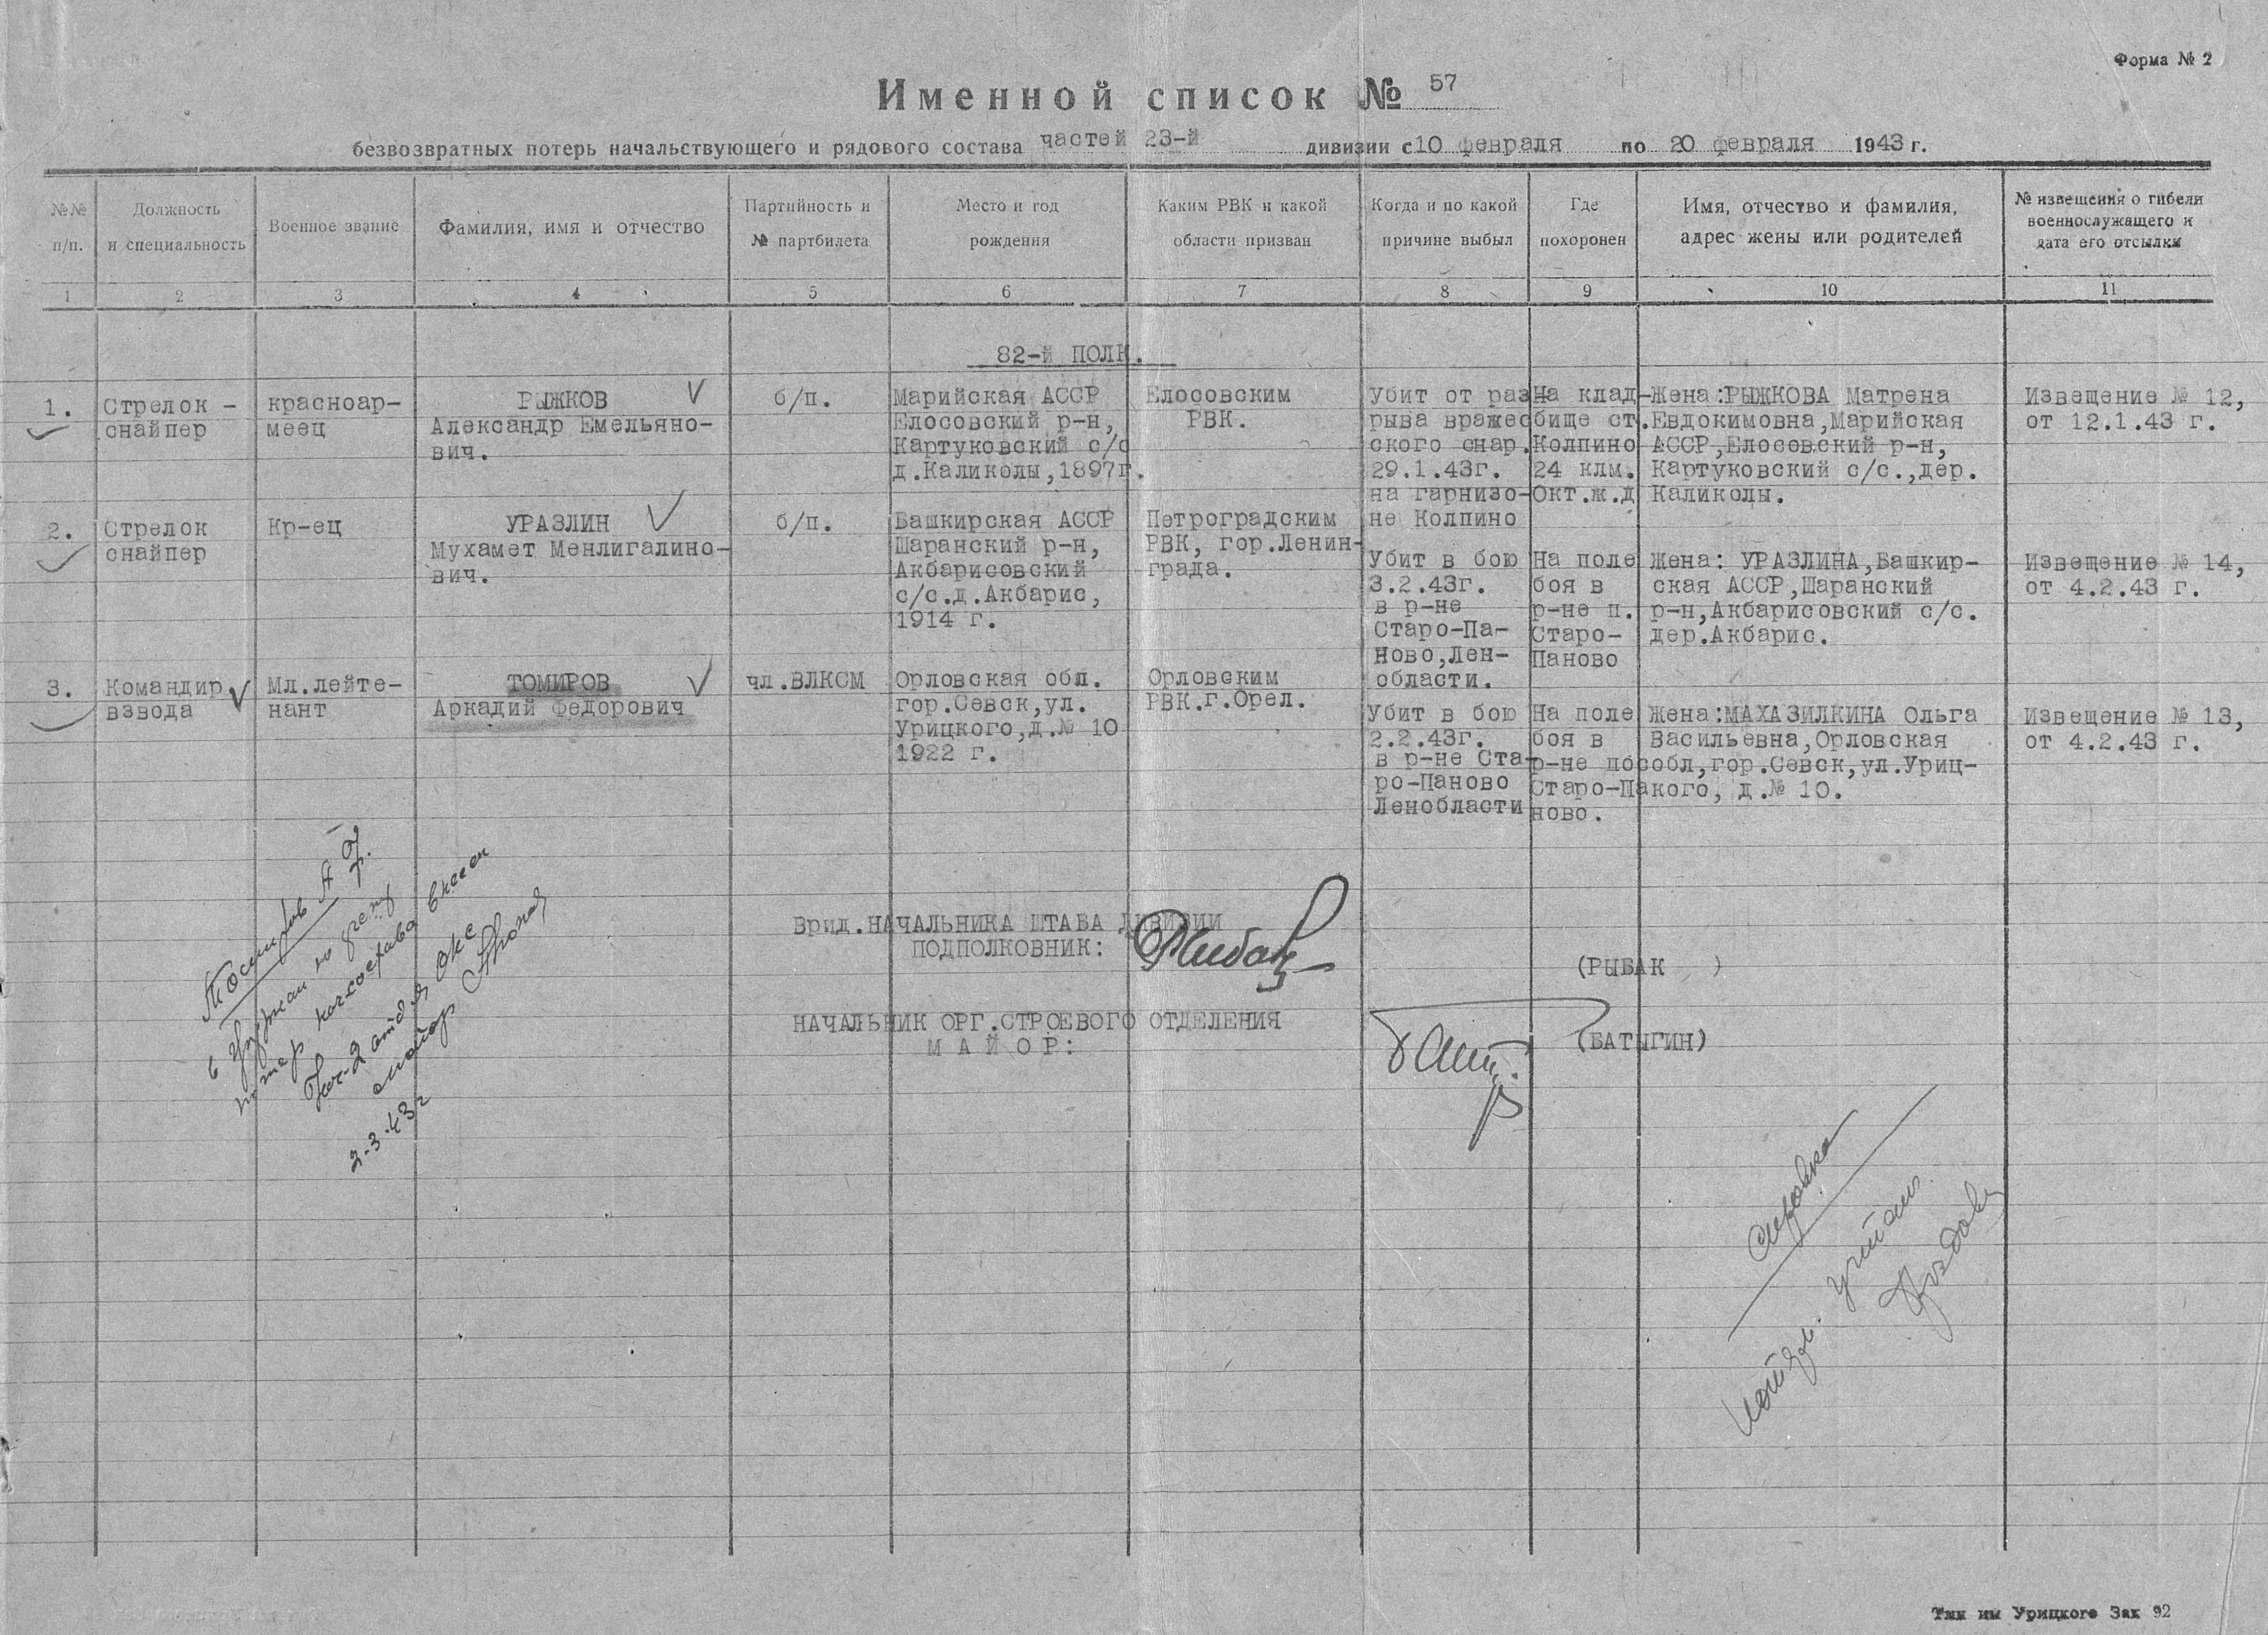 Форма № 2
Именной список № 57
безвозвратных потерь начальствующего и рядового состава частей 23-й дивизии с 10 февраля по 20 февраля 1943 г.
№№ п/п.
Должность и специальность
Военное звание
Фамилия, имя и отчество
Партийность и № партбилета
Место и год рождения
Каким РВК и какой области призван
Когда и по какой причине выбыл
Где похоронен
Имя, отчество и фамилия, адрес жены или родителей
№ извещения о гибели военнослужащего и дата его отсылки
1 2 3 4 5 6 7 8 9 10 11
82-й ПОЛК.
1.
Стрелок -
снайпер
красноар-
меец
РЫЖКОВ
Александр Емельяно-
вич.
б/п.
Марийская АССР
Елосовский р-н,
Картуковский с/с
д.Каликолы,1897г.
Елосовским
РВК.
Убит от раз
рыва вражес
ского снар.
29.1.43г.
на гарнизо-
не Колпино
На клад-
бище ст.
Колпино
24 клм.
Окт.ж.д
Жена:РЫЖКОВА Матрена
Евдокимовна,Марийская
АССР,Елосовский р-н,
Картуковский с/с.,дер.
Каликолы.
Извещение № 12,
от 12.1.43 г.
2.
Стрелок
снайпер
Кр-ец
УРАЗЛИН
Мухамет Менлигалино-
вич.
б/п.
Башкирская АССР
Шаранский р-н,
Акбарисовский
с/с.д.Акбарис,
1914 г.
Петроградским
РВК, гор.Ленин-
града.
Убит в бою
3.2.43г.
в р-не
Старо-Па-
Ново,Лен-
области.
На поле
боя в
р-не п.
Старо-
Паново
Жена: УРАЗЛИНА,Башкир-
ская АССР,Шаранский
р-н,Акбарисовский с/с.
дер.Акбарис.
Извещение № 14,
от 4.2.43 г.
3.
Командир
взвода
Мл.лейте-
нант
ТОМИРОВ
Аркадий Федорович
чл.ВЛКСМ
Орловская обл.
гор.Севск,ул.
Урицкого,д.№ 10
1922 г.
Орловским
РВК.г.Орел.
Убит в бою
2.2.43г.
в р-не Ста-
ро-Паново
Ленобласти
На поле
боя в
р-не пос
Старо-Па
ново.
Жена:МАХАЗИЛКИНА Ольга
Васильевна,Орловская
обл,гор.Севск,ул.Уриц-
кого, д.№ 10.
Извещение № 13,
от 4.2.43 г.
Томиров А Ф.
в журнал по учету
потерь начсостава внесен
майор
2.3.43г
Врид.НАЧАЛЬНИКА ШТАБА ДИВИЗИИ
ПОДПОЛКОВНИК:
(РЫБАК )
НАЧАЛЬНИК ОРГ.СТРОЕВОГО ОТДЕЛЕНИЯ
МАЙОР:
(БАТЫГИН)
Справка
Тип им Урицкого Зак 92